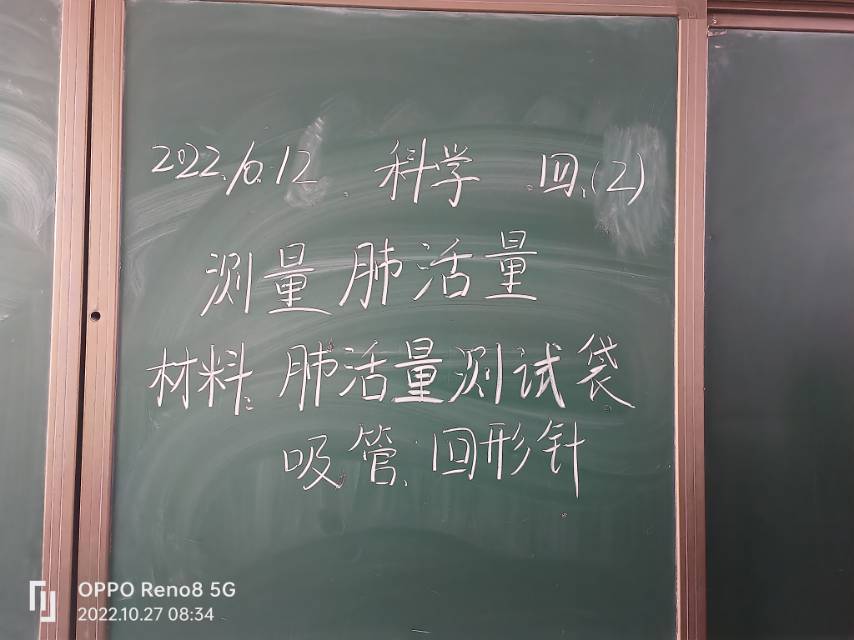 2022.10.12. 科学 四.(2)
测量肺活量
材料:肺活量测试袋
吸管、回形针
OPPO Reno8 5G
2022.10.27 08:34